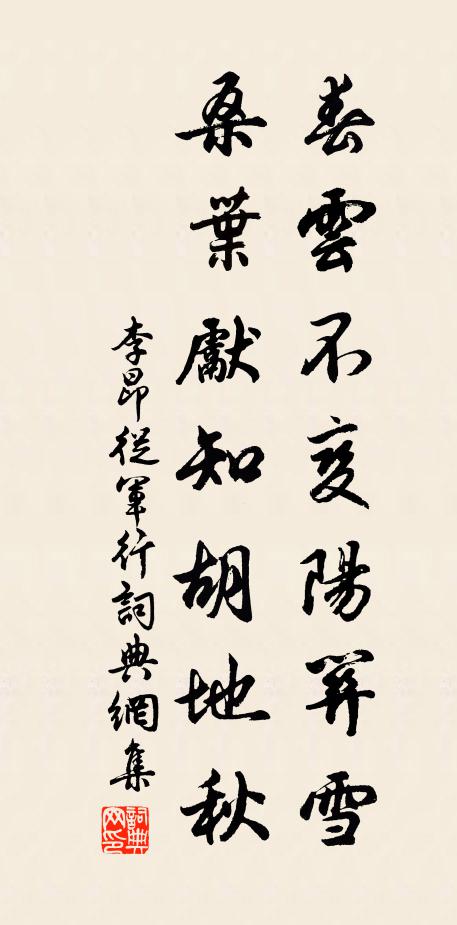 春雲不變陽關雪
桑葉獻知胡地秋
李昂從軍行詞典網集
詞典网印